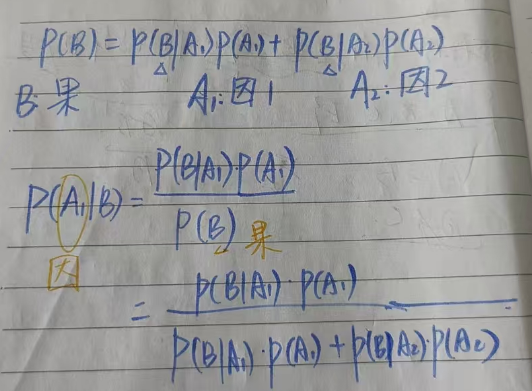 P(B) = P(B|A₁)P(A₁) + P(B|A₂)P(A₂)
B:果 A₁:因1 A₂:因2
P(A₁|B) = P(B|A₁)P(A₁) / P(B) 果
因
= P(B|A₁)·P(A₁) / P(B|A₁)·P(A₁) + P(B|A₂)·P(A₂)